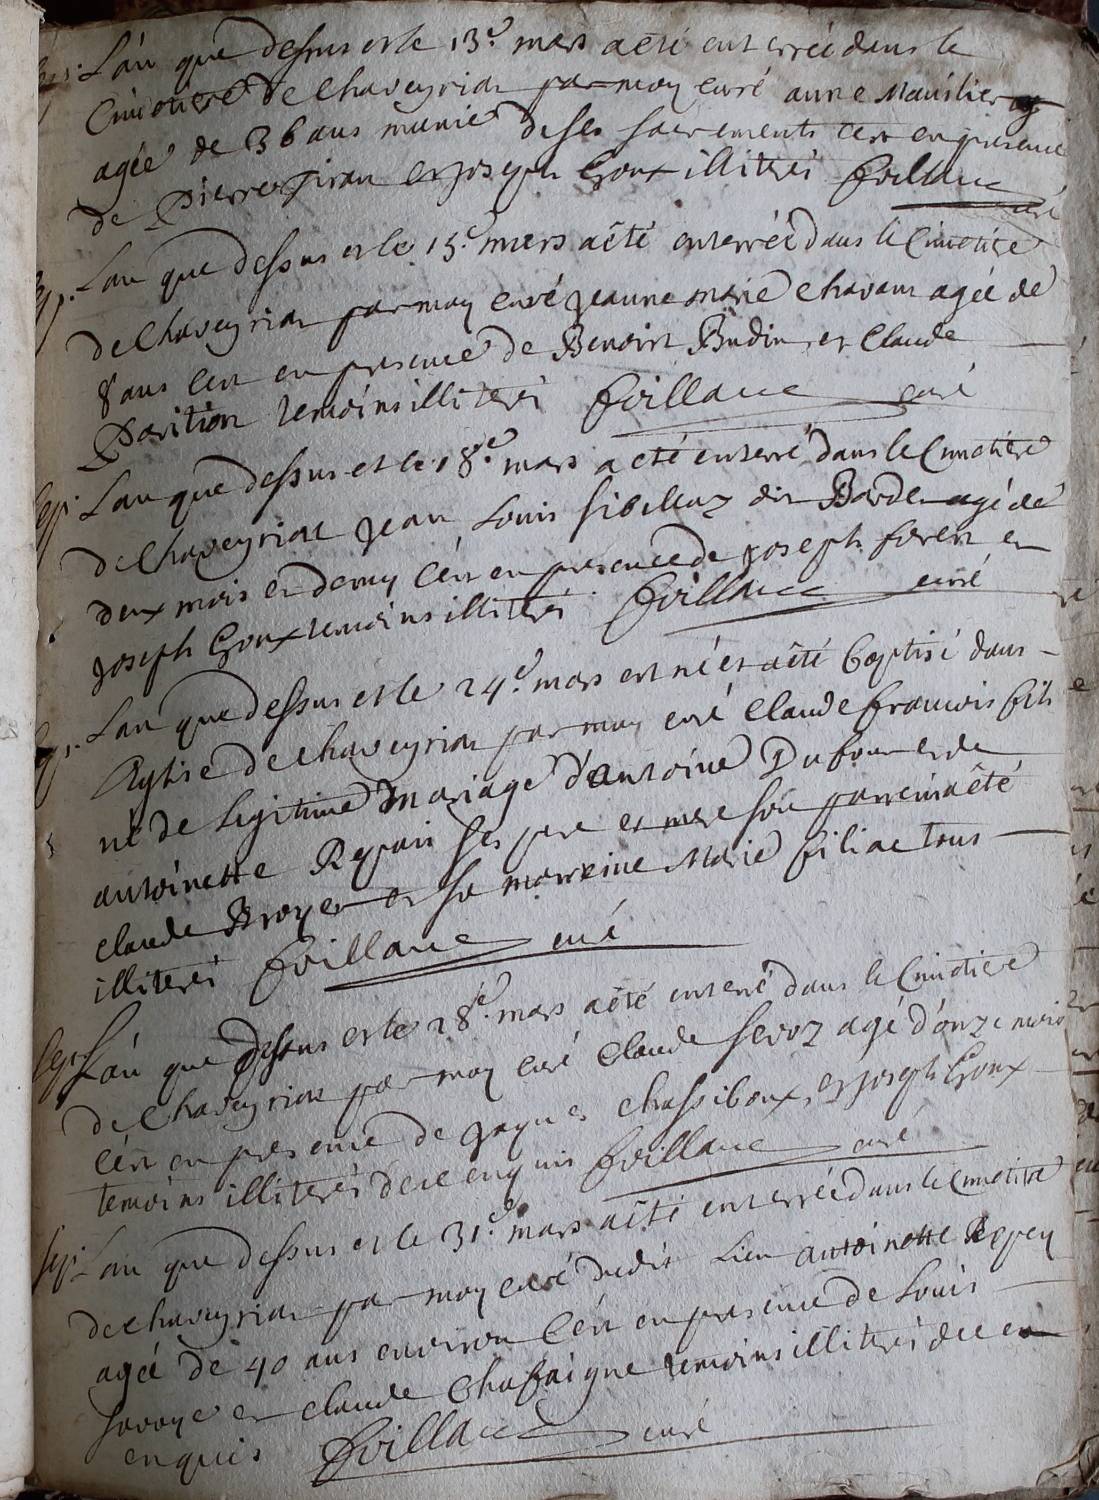 L'an que dessus et le 13e mars a eté enterrée dans le
Cimotiere de Chaveyriat par moy curé anne Mauilier
agée de 36 ans munie de ses sacrements c'en en presence
de Pierre Piran et Joseph Groux illiterés foillane
curé
Lan que dessus et le 15e mars a été enterrée dans le Cimotiere
de Chaveyriat par moy curé jeanne marie Chavan agée de
8 ans c'en en presence de Benoist Budin et Claude
Parition temoins illiterés foillane curé
Lan que dessus et le 18e mars a eté enterré dans le Cimotiere
de Chaveyriat jean Louis sibellaz dit Barde agé de
deux mois et demy c'en en presence de joseph forest et
joseph Groux temoins illiterés foillane curé
Lan que dessus et le 24e mars est né et a été baptisé dans
l'Eglise de Chaveyriat par moy curé Claude francois fils
né de legitime Mariage d'antoine Dufour et de
antoinette Repain ses pere et mere son parrein a été
claude Broyer et sa marreine Marie filiac tous
illiterés foillane curé
L'an que dessus et le 28e mars a été enterré dans le Cimotiere
de Chaveyriat par moy curé Claude servoz agé d'onze mois
c'en en presence de jaques Chassiboux, et joseph Groux
temoins illiterés de ce enquis foillane curé
Lan que dessus et le 31e mars a été enterrée dans le Cimotire
de Chaveyriat par moy curé dudit Lieu antoinette Reppey
agée de 40 ans environ c'en en presence de Louis
savoye et claude Chafaigne temoins illiterés de ce en
enquis foillane curé